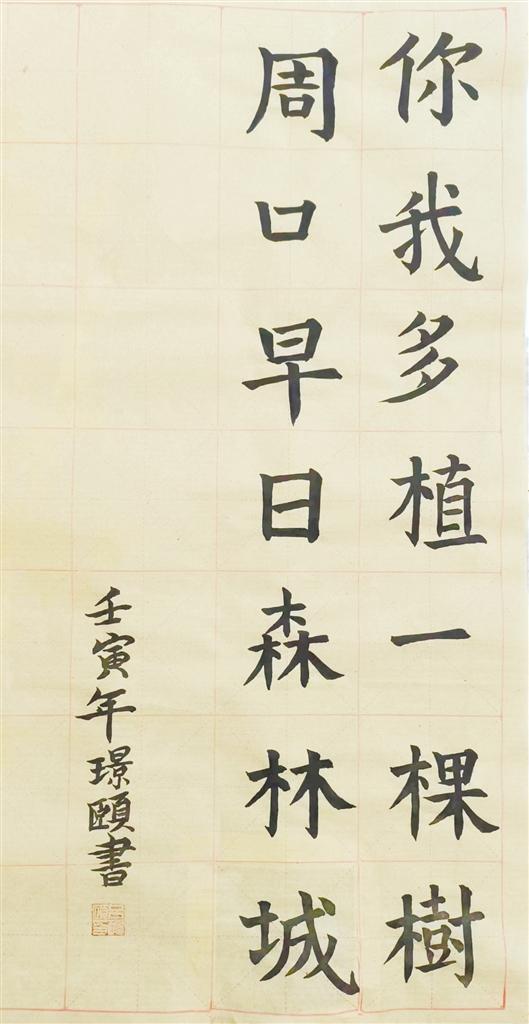 你我多植一棵樹
周口早日森林城
壬寅年璟頤書